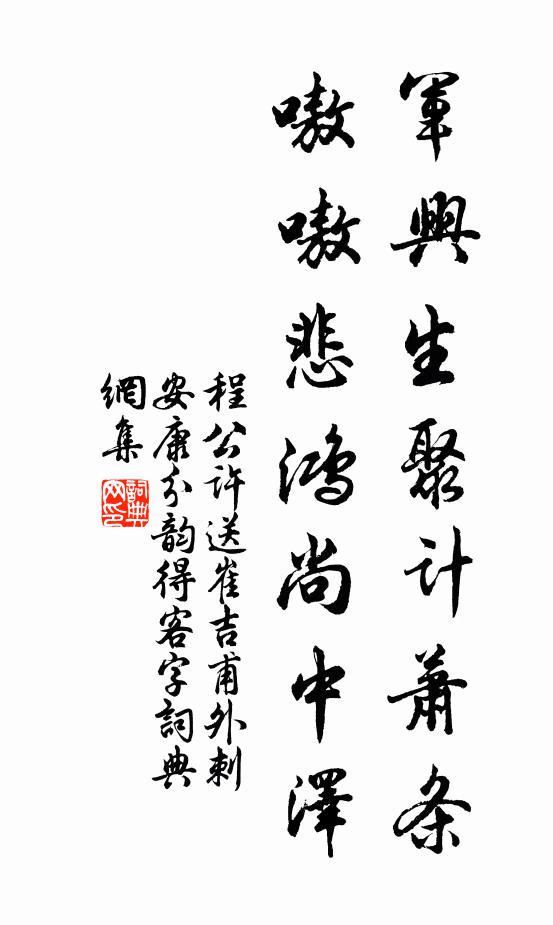 軍興生聚計蕭条
嗷嗷悲鴻尚中澤
程公许送崔吉甫外刺
安康分韵得客字詞典
網集
詞典
网印